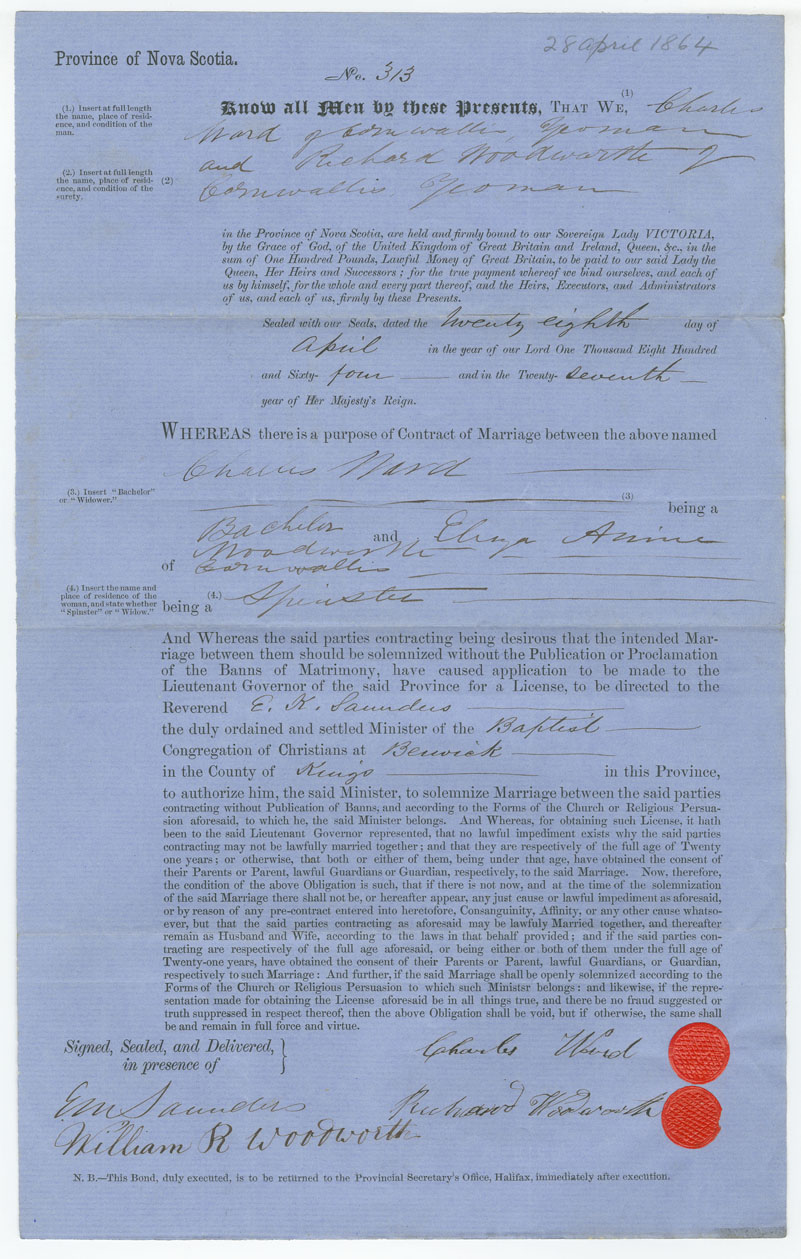 28 april 1864
Province of Nova Scotia.
No. 313
(1.) Insert at full length
the name, place of resid-
ence, and condition of the
man.
Know all Men by these Presents, THAT WE, (1) Charles
Ward of Cornwallis Yeoman
and Richard Woodworth of
(2.) Insert at full length
the name, place of resid-
ence, and condition of the
surety.
(2) Cornwallis Yeoman
in the Province of Nova Scotia, are held and firmly bound to our Sovereign Lady VICTORIA,
by the Grace of God, of the United Kingdom of Great Britain and Ireland, Queen, &c., in the
sum of One Hundred Pounds, Lawful Money of Great Britain, to be paid to our said Lady the
Queen, Her Heirs and Successors ; for the true payment whereof we bind ourselves, and each of
us by himself, for the whole and every part thereof, and the Heirs, Executors, and Administrators
of us, and each of us, firmly by these Presents.
Sealed with our Seals, dated the twenty eighth day of
April in the year of our Lord One Thousand Eight Hundred
and Sixty- four and in the Twenty- seventh
year of Her Majesty's Reign.
WHEREAS there is a purpose of Contract of Marriage between the above named
Charles Ward
(3.) Insert "Bachelor"
or "Widower."
(3) being a
Bachelor and Eliza Annie
Woodworth
of Cornwallis
(4.) Insert the name and
place of residence of the
woman, and state whether
"Spinster" or "Widow."
being a (4.) Spinster
And Whereas the said parties contracting being desirous that the intended Mar-
riage between them should be solemnized without the Publication or Proclamation
of the Banns of Matrimony, have caused application to be made to the
Lieutenant Governor of the said Province for a License, to be directed to the
Reverend E. K. Saunders
the duly ordained and settled Minister of the Baptist
Congregation of Christians at Berwick
in the County of Kings in this Province,
to authorize him, the said Minister, to solemnize Marriage between the said parties
contracting without Publication of Banns, and according to the Forms of the Church or Religious Persua-
sion aforesaid, to which he, the said Minister belongs. And Whereas, for obtaining such License, it hath
been to the said Lieutenant Governor represented, that no lawful impediment exists why the said parties
contracting may not be lawfully married together ; and that they are respectively of the full age of Twenty
one years ; or otherwise, that both or either of them, being under that age, have obtained the consent of
their Parents or Parent, lawful Guardians or Guardian, respectively, to the said Marriage. Now, therefore,
the condition of the above Obligation is such, that if there is not now, and at the time of the solemnization
of the said Marriage there shall not be, or hereafter appear, any just cause or lawful impediment as aforesaid,
or by reason of any pre-contract entered into heretofore, Consanguinity, Affinity, or any other cause whatso-
ever, but that the said parties contracting as aforesaid may be lawfuly Married together, and thereafter
remain as Husband and Wife, according to the laws in that behalf provided ; and if the said parties con-
tracting are respectively of the full age aforesaid, or being either or both of them under the full age of
Twenty-one years, have obtained the consent of their Parents or Parent, lawful Guardians, or Guardian,
respectively to such Marriage : And further, if the said Marriage shall be openly solemnized according to the
Forms of the Church or Religious Persuasion to which such Minister belongs : and likewise, if the repre-
sentation made for obtaining the License aforesaid be in all things true, and there be no fraud suggested or
truth suppressed in respect thereof, then the above Obligation shall be void, but if otherwise, the same shall
be and remain in full force and virtue.
Signed, Sealed, and Delivered,
in presence of
Charles Ward
E M Saunders
Richard Woodworth
William R Woodworth
N. B.—This Bond, duly executed, is to be returned to the Provincial Secretary's Office, Halifax, immediately after execution.